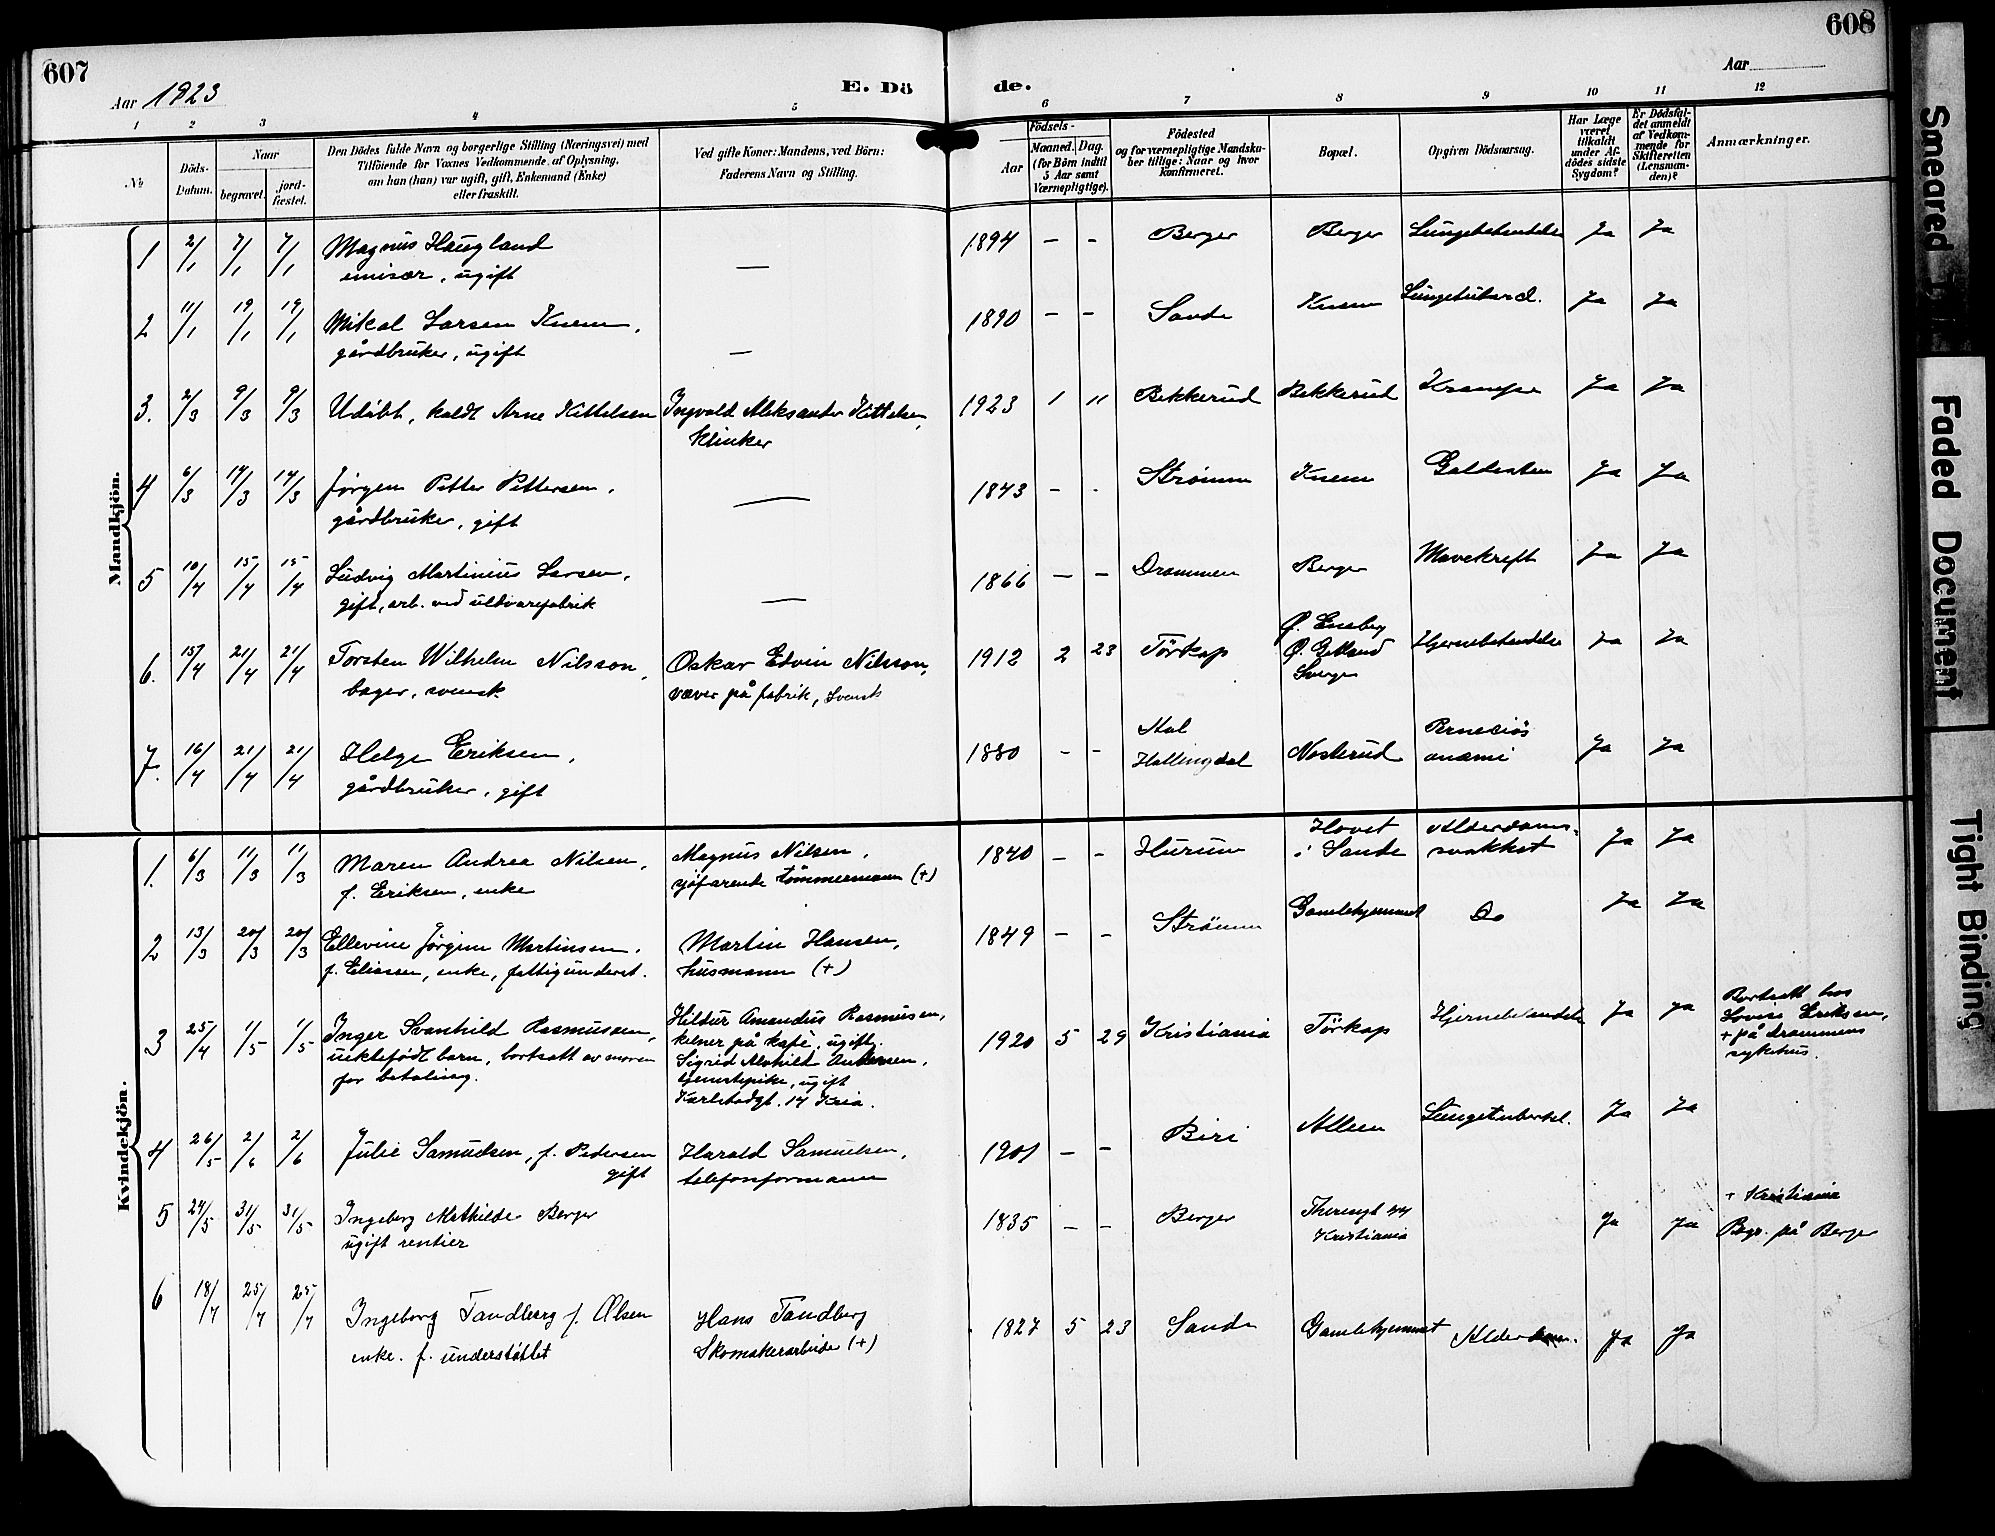 607
608
Aar 1923
E. Dö
de.
Aar
1 2 3 4 5 6 7 8 9 10 11 12
No
Döds-Datum.
Naar
begravet.
jordfæstet.
Den Dödes fulde Navn og borgerlige Stilling (Næringsvei) med
Tilföiende for Voxnes Vedkommende af Oplysning,
om han (hun) var ugift, gift, Enkemand (Enke)
eller fraskilt.
Ved gifte Koner: Mandens, ved Börn:
Faderens Navn og Stilling.
Födsels-
Aar
Maaned. Dag.
(for Börn indtil
5 Aar samt
Værnepligtige).
Födested
og for værnepligtige Mandska-
ber tillige: Naar og hvor
konfirmeret.
Bopæl.
Opgiven Dödsaarsag.
Har Læge
været
tilkaldt
under Af-
dödes sidste
Sygdom?
Er Dödsfal-
det anmeldt
af Vedkom-
mende for
Skifteretten
(Lensman-
den)?
Anmærkninger.
Mandkjön.
1 2/1 7/1 7/1 Magnus Haugland — 1894 – – Berger Berger Ja Ja
emisær, ugift
2 11/1 19/1 19/1 Mikal Larsen Knem, — 1890 – – Sande Knem Ja Ja
gårdbruker, ugift
3. 2/3 9/3 9/3 Udöbt, kaldt Arne Kittelsen Ingvald Aleksander Kittelsen, 1923 1 11 Bekkerud Bekkerud Krampe Ja Ja
klinker
4 6/3 14/3 14/3 Jørgen Petter Pettersen, — 1843 – – Strømm Knem Galdesten Ja Ja
gårdbruker, gift
5 10/4 15/4 15/4 Ludvig Martinius Larsen, — 1866 – – Drammen Berger Mavekreft Ja Ja
gift, arb. ved uldvarefabrik
6. 15/4 21/4 21/4 Torsten Wilhelm Nilsson, Oskar Edvin Nilsson, 1912 2 23 Törkop Ø. Eneberg Hjernebetendelse Ja Ja
bager, svensk væver på fabrik, Svensk Ø. Götland
Sverge
7. 16/4 21/4 21/4 Helge Eriksen, 1880 – – Aal Nosterud Perneciøs Ja Ja
gårdbruker, gift Hallingdal anæmi
Kvindekjön.
1. 6/3 11/3 11/3 Maren Andrea Nilsen, Magnus Nilsen, 1840 – – Hurum Hovet Alderdoms- Ja Ja
f. Eriksen, enke sjöfarende tömmermann (+) i Sande svakhet
2 13/3 20/3 20/3 Ellevine Jörgine Martinsen, Martin Hansen, 1849 – – Strömm Gamlehjemmet Do Ja Ja
f. Eliasen, enke, fattigunderst. husmann (+)
3 25/4 1/5 1/5 Inger Svanhild Rasmussen, Hildur Amandus Rasmussen, 1920 5 29 Kristiania Törkop Ja Ja Bortsatt hos
uektefödt barn, bortsatt av moren kelner på kafe, ugift, Lovise Eriksen,
for betaling. Sigrid Alvhild Andersen, + på Drammens
tjenestepike, ugift sykehus.
Karlstadgt. 14 Kria.
4 26/5 2/6 2/6 Julie Samuelsen, f. Pedersen Harald Samuelsen, 1901 – – Biri Alleen Lungetuberkl. Ja Ja
gift telefonformann
5 24/5 31/5 31/5 Ingeborg Mathilde Berger 1835 – – Berger Theresgt 44 Ja Ja + Kristiania
ugift rentier Kristiania Begr. på Berger
6 18/7 25/7 25/7 Ingeborg Tandberg f. Olsen Hans Tandberg 1827 5 23 Sande Gamlehjemmet Alderdom. Ja Ja
enke. f. understøttet Skomakerarbeider (+)
Smeared
Faded Document
Tight Binding